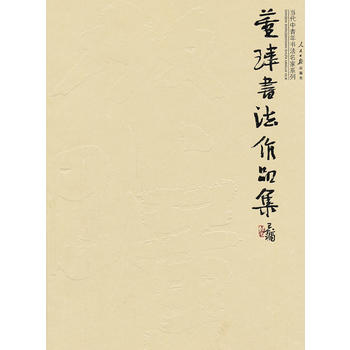 人民日报出版社
当代中青年书法名家系列
董 書法作品集